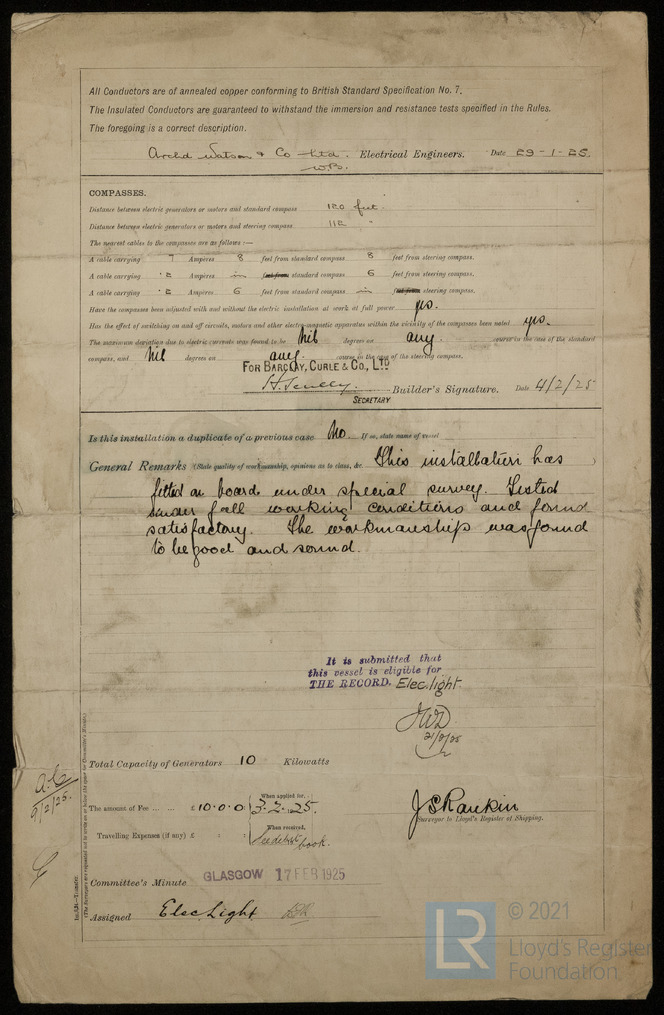 All Conductors are of annealed copper conforming to British Standard Specification No. 7.
The Insulated Conductors are guaranteed to withstand the immersion and resistance tests specified in the Rules.
The foregoing is a correct description.
Archd Watson & Co Ltd. Electrical Engineers. Date 29-1-25.
COMPASSES.
Distance between electric generators or motors and standard compass 120 feet.
Distance between electric generators or motors and steering compass 112 "
The nearest cables to the compasses are as follows :—
A cable carrying 7 Ampères 8 feet from standard compass 8 feet from steering compass.
A cable carrying ·2 Ampères in feet from standard compass 6 feet from steering compass.
A cable carrying ·2 Ampères 6 feet from standard compass in feet from steering compass.
Have the compasses been adjusted with and without the electric installation at work at full power yes.
Has the effect of switching on and off circuits, motors and other electro-magnetic apparatus within the vicinity of the compasses been noted yes.
The maximum deviation due to electric currents was found to be Nil degrees on any course in the case of the standard
compass, and Nil degrees on any course in the case of the steering compass.
FOR BARCLAY, CURLE & CO., LTD
Builder's Signature. Date 4/2/25
SECRETARY
Is this installation a duplicate of a previous case No. If so, state name of vessel
General Remarks (State quality of workmanship, opinions as to class, &c. This installation has
fitted on board under special survey. Tested
under full working conditions and found
satisfactory. The workmanship was found
to be good and sound.
It is submitted that
this vessel is eligible for
THE RECORD. Elec. light
JWD
21/2/25
Total Capacity of Generators 10 Kilowatts
a.c
9/2/25.
The amount of Fee ... ... £10.0.0 When applied for, 3.2.25.
Travelling Expenses (if any) £ : : When received, See debit book.
J S Rankin
Surveyor to Lloyd's Register of Shipping.
Committee's Minute GLASGOW 17 FEB 1925
Assigned Elec Light
LR
© 2021
Lloyd's Register
Foundation